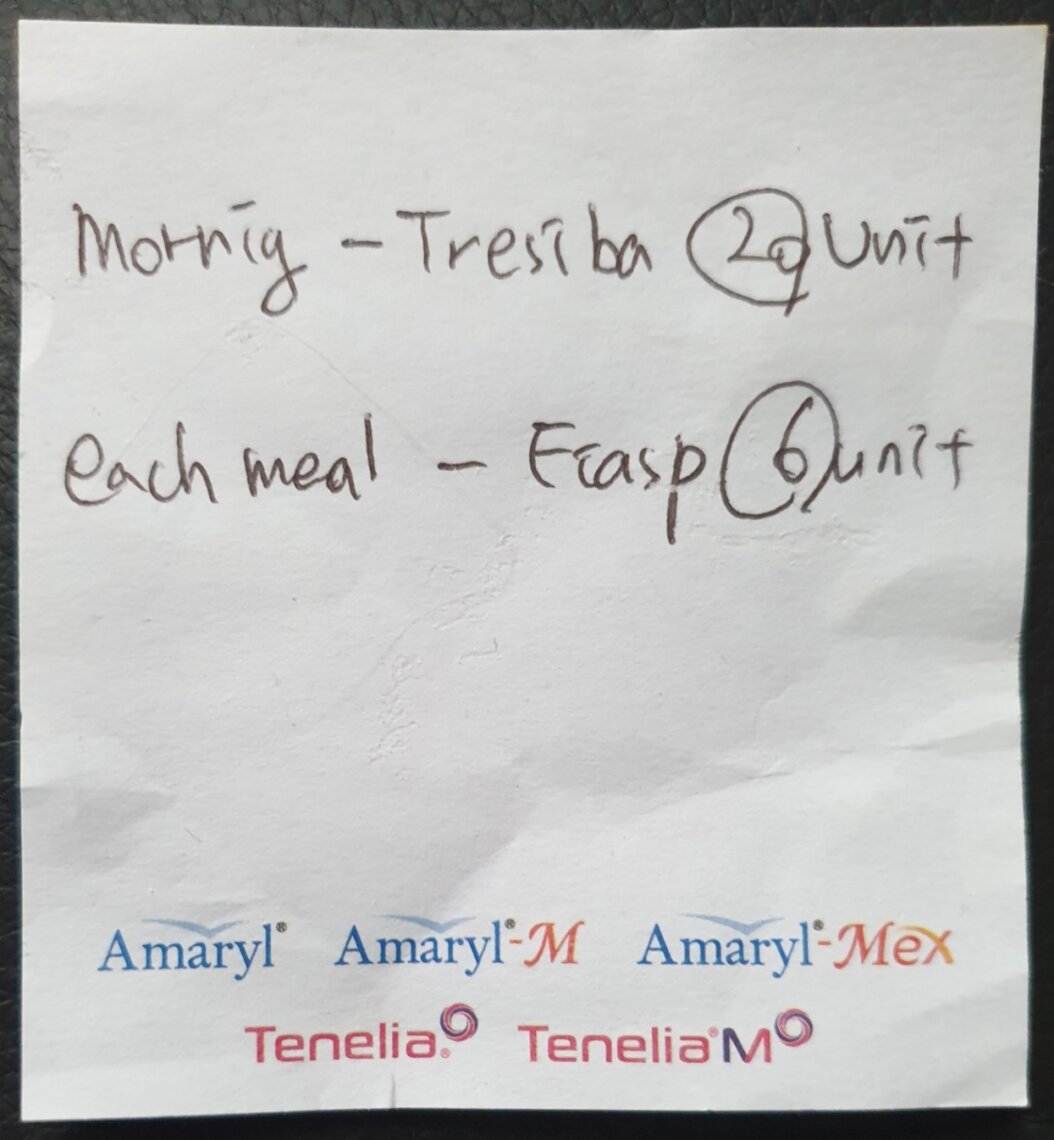 Mornig - Tresiba Unit
each meal - Fiasp 6 unit
Amaryl® Amaryl®-M Amaryl®-Mex
Tenelia® Tenelia®M